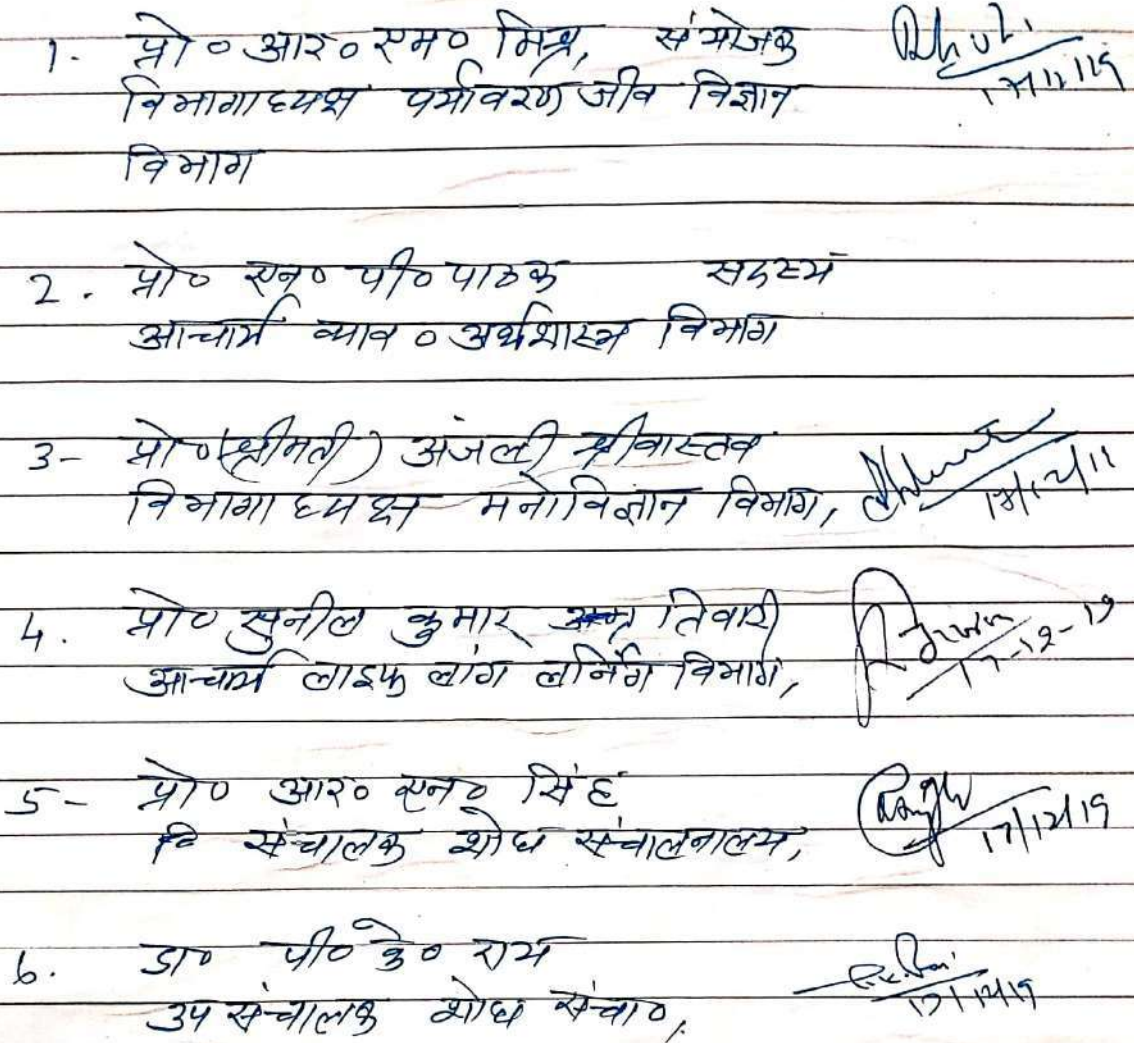 1. प्रो० आर० एम० मिश्र, संयोजक
विभागाध्यक्ष पर्यावरण जीव विज्ञान
विभाग
17/12/19
2. प्रो० एन० पी० पाठक सदस्य
आचार्य व्याव० अर्थशास्त्र विभाग
3- प्रो० (श्रीमती) अंजली श्रीवास्तव
विभागाध्यक्ष मनोविज्ञान विभाग,
4. प्रो० सुनील कुमार तिवारी
आचार्य लाइफ लांग लर्निंग विभाग,
17-12-19
5- प्रो० आर० एन० सिंह
संचालक शोध संचालनालय,
17/12/19
6. डा० पी० के० राय
उप संचालक शोध संचा०,
P.K. Rai
17/12/19